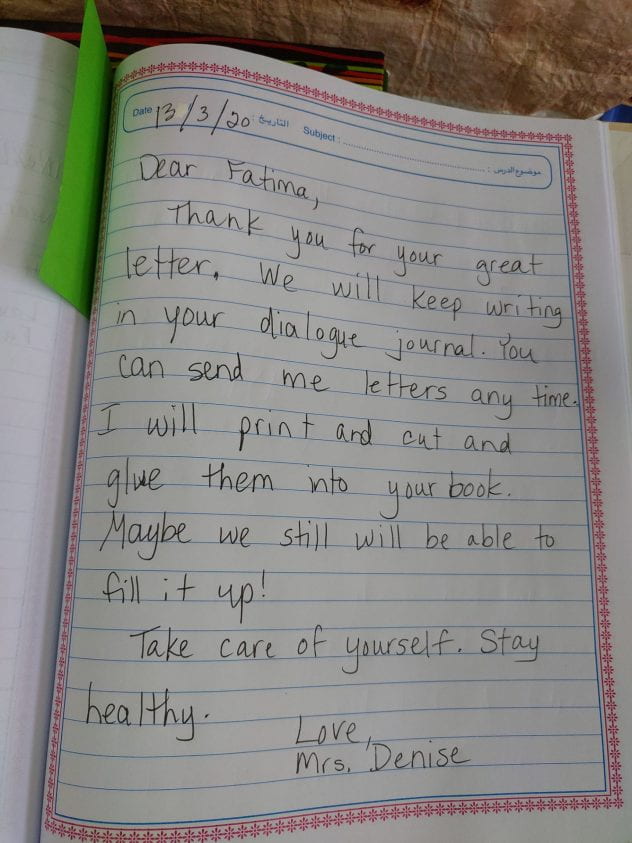 Date 13/3/20 التاريخ: Subject: موضوع الدرس:
Dear Fatima,
Thank you for your great
letter. We will keep writing
in your dialogue journal. You
can send me letters any time.
I will print and cut and
glue them into your book.
Maybe we still will be able to
fill it up!
Take care of yourself. Stay
healthy.
Love,
Mrs. Denise